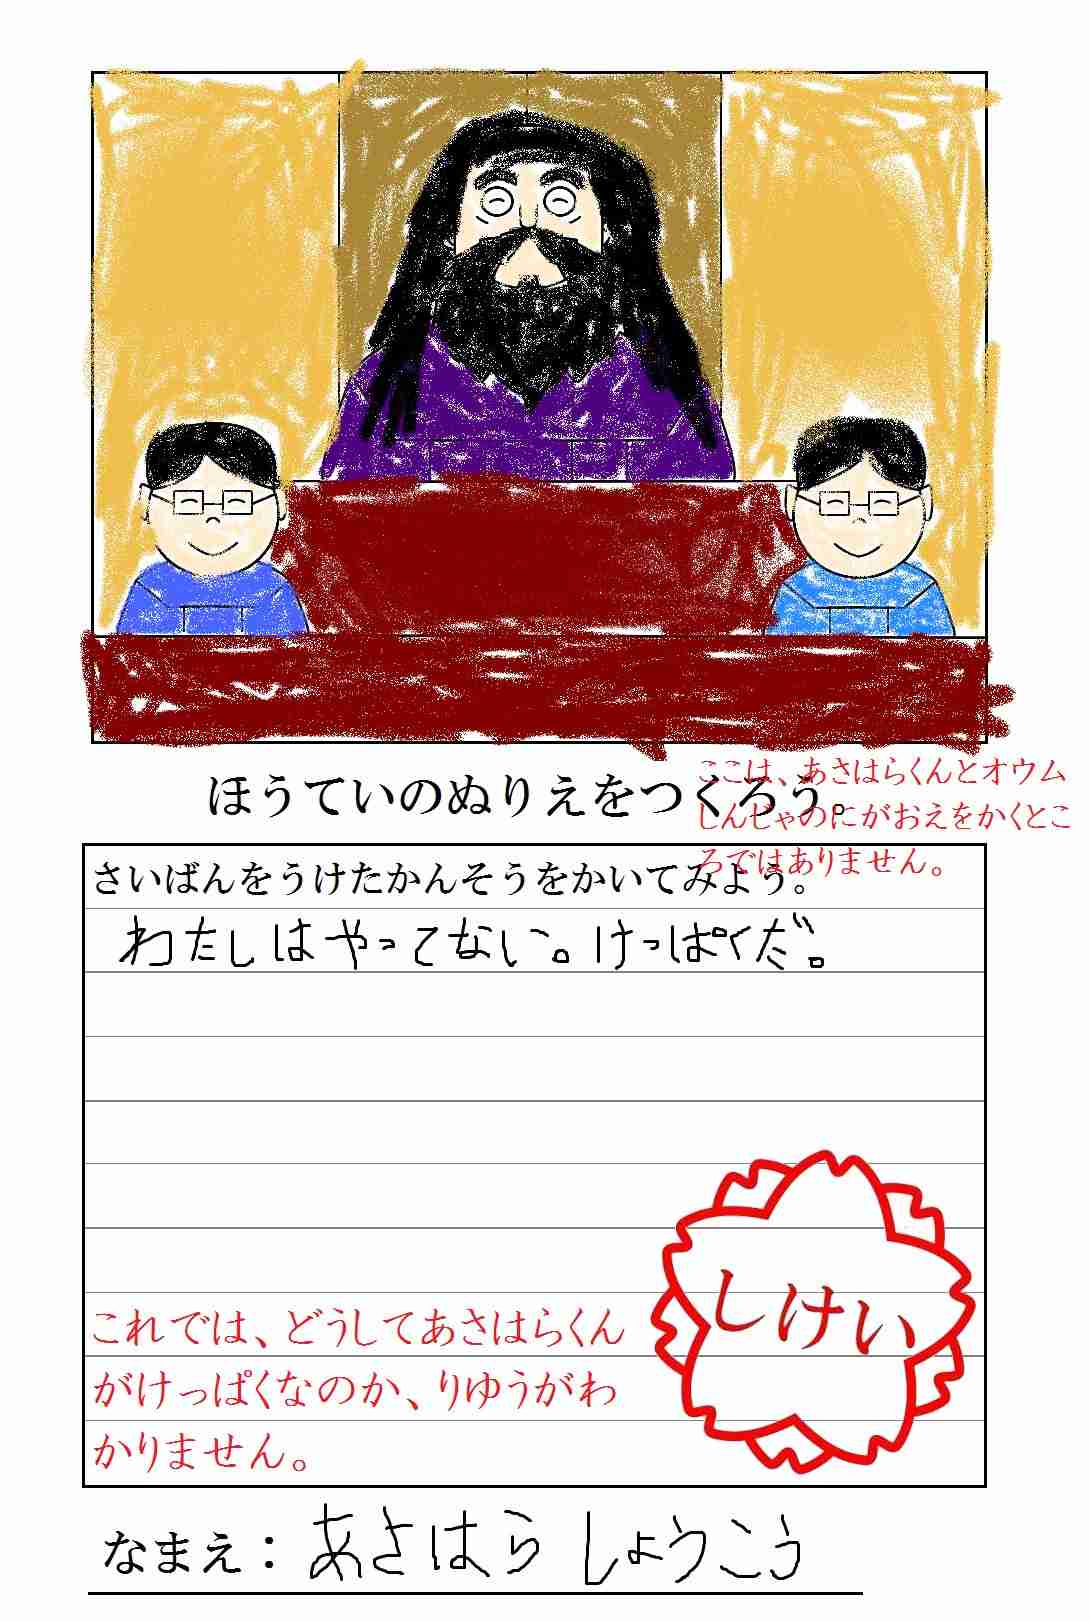 ほうていのぬりえをつくろう。
ここは、あさはらくんとオウム
しんじゃのにがおえをかくとこ
ろではありません。
さいばんをうけたかんそうをかいてみよう。
わたしはやってない。けっぱくだ。
これでは、どうしてあさはらくん
がけっぱくなのか、りゆうがわ
かりません。
しけい
なまえ：あさはら しょうこう